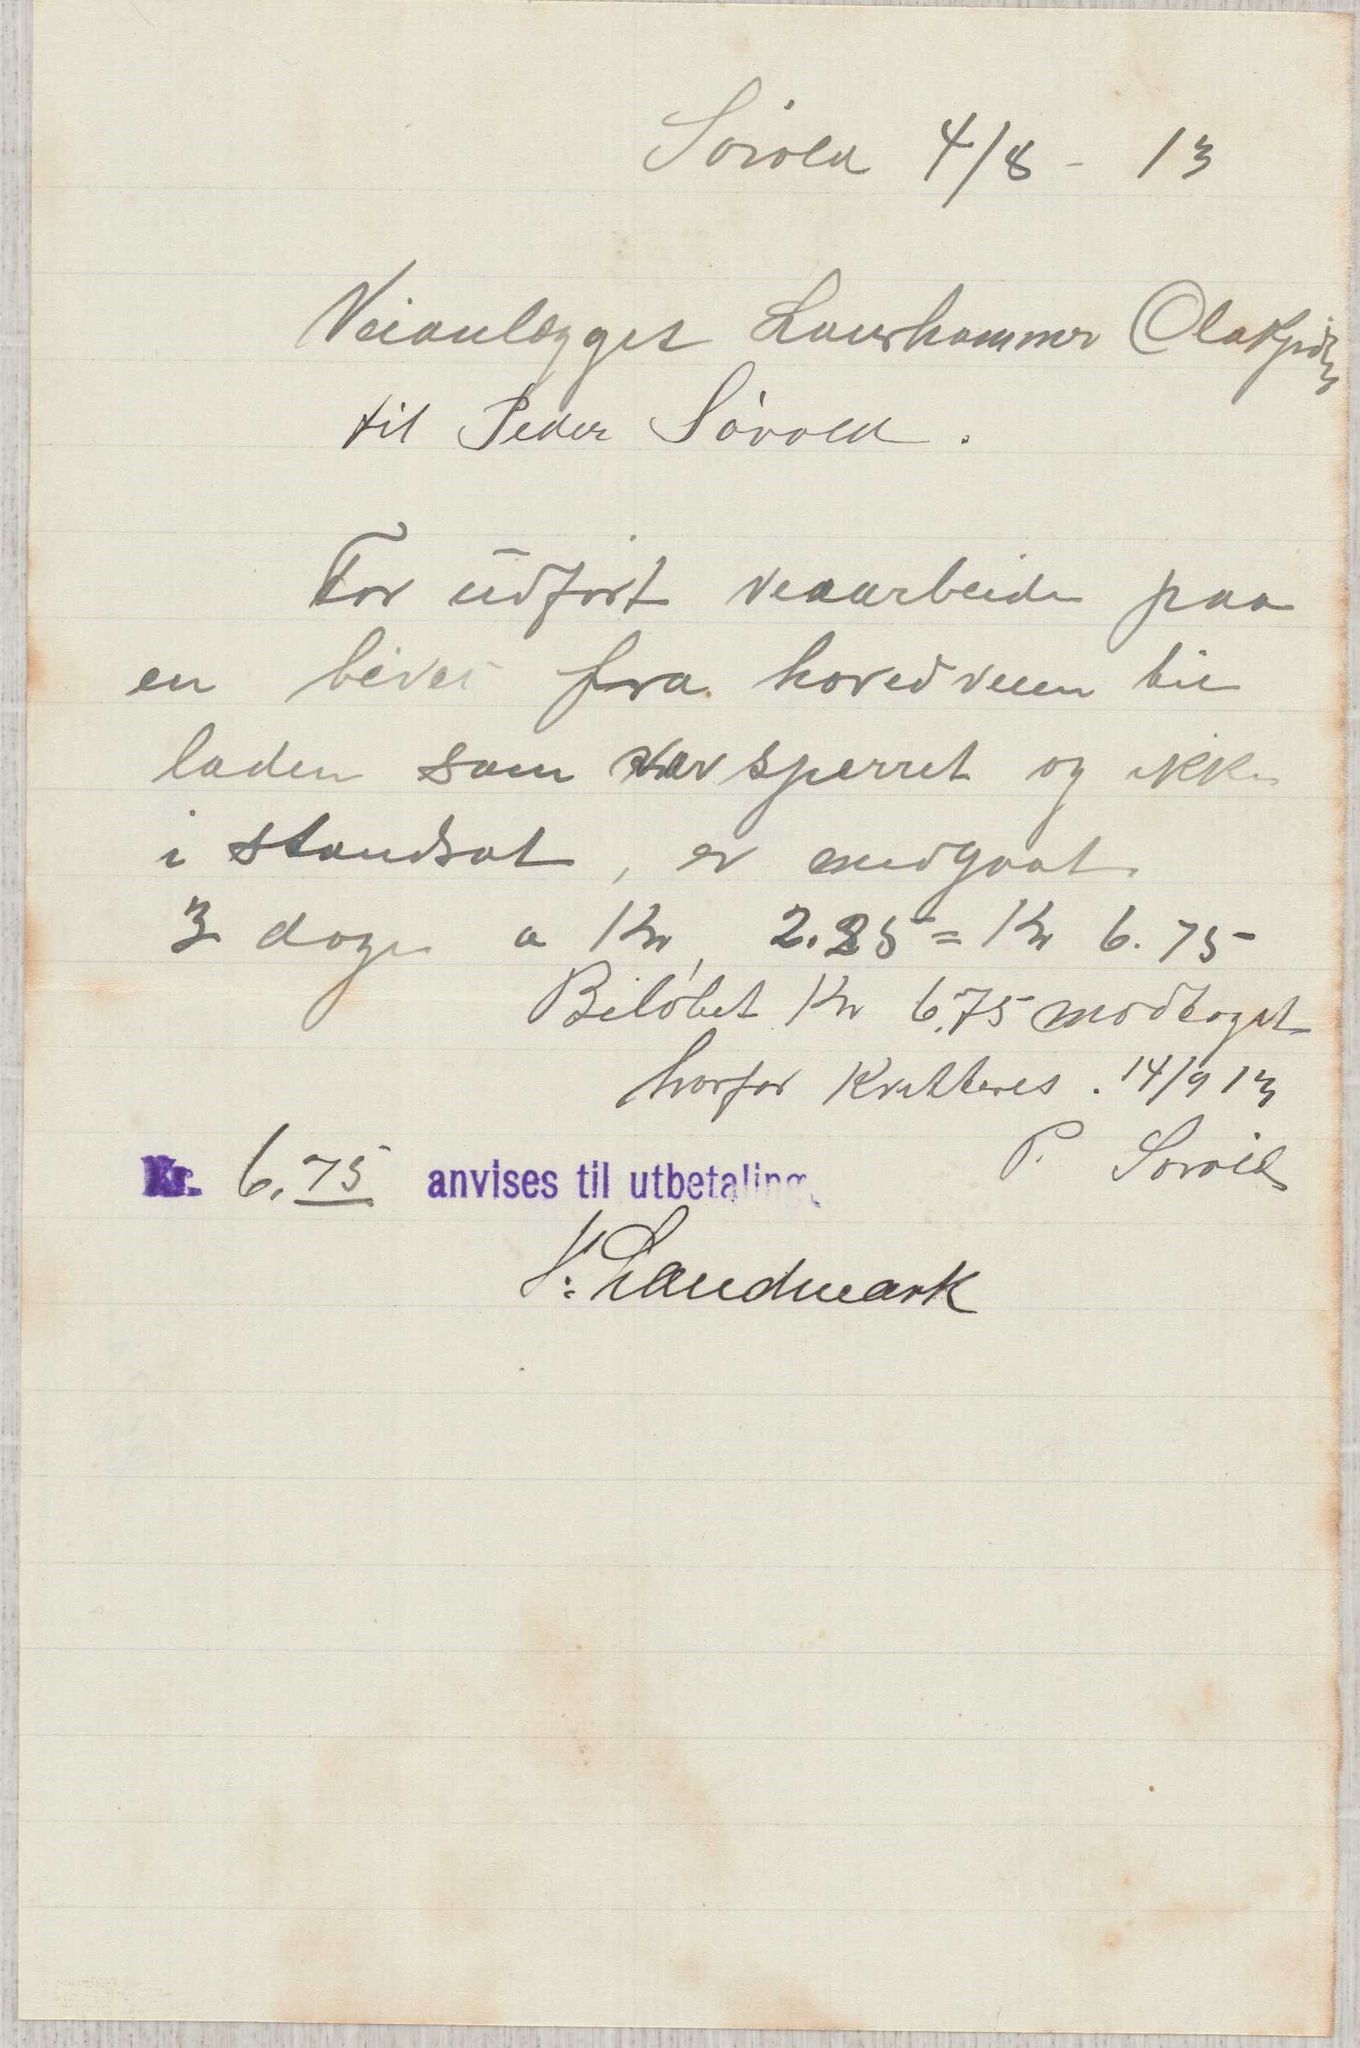 Sørold 4/8 - 13
Veianlægget Laurhammer
til Peder Sørold.
For udført veaarbeide paa
en bivei fra hovedveien til
laden som var sperret og ikke
i standsat, er medgaat
3 dage a Kr. 2.25 = Kr 6.75
Beløbet Kr 6,75 modtaget
hvorfor Kvitteres. 14/9 13
P. Sørold
Kr. 6.75 anvises til utbetaling.
Landmark